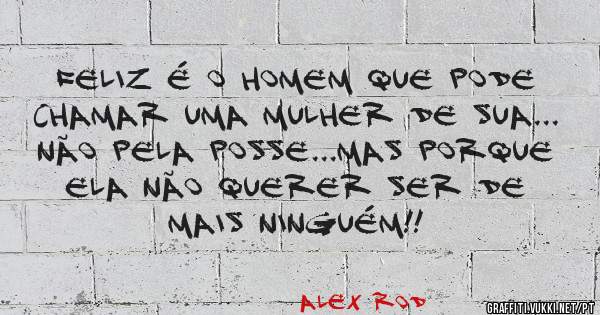 FELIZ É O HOMEM QUE PODE
CHAMAR UMA MULHER DE SUA...
NÃO PELA POSSE...MAS PORQUE
ELA NÃO QUERER SER DE
MAIS NINGUÉM!!
ALEX ROD
GRAFFITI.VUKKI.NET/PT